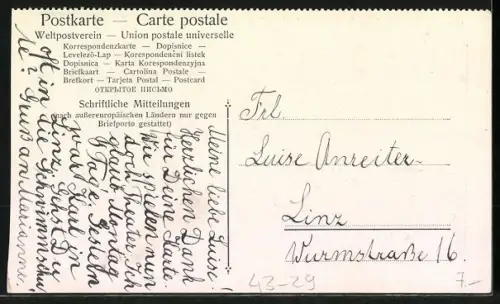 Postkarte — Carte postale
Weltpostverein — Union postale universelle
Korrespondenzkarte — Dopisnice —
Levelező-Lap — Korespondenční lístek
Dopisnica — Karta Korespondenzyjna
Briefkaart — Cartolina Postale —
Brefkort — Tarjeta Postal — Postcard
ОТКРЫТОЕ ПИСЬМО
Schriftliche Mitteilungen
(nach außereuropäischen Ländern nur gegen
Briefporto gestattet)
Meine liebe Luise!
Herzlichen Dank
für Deine Karte.
Wir spielen nun
doch Theater. Ich
glaub Montag
8 Tage. Gestern
war Karl in
Linz. Gehst Du
oft in die Schwimmschu
le? Gruß an Marianne.
Frl.
Luise Anreiter
Linz
Wurmstraße 16.
43-29
7.-